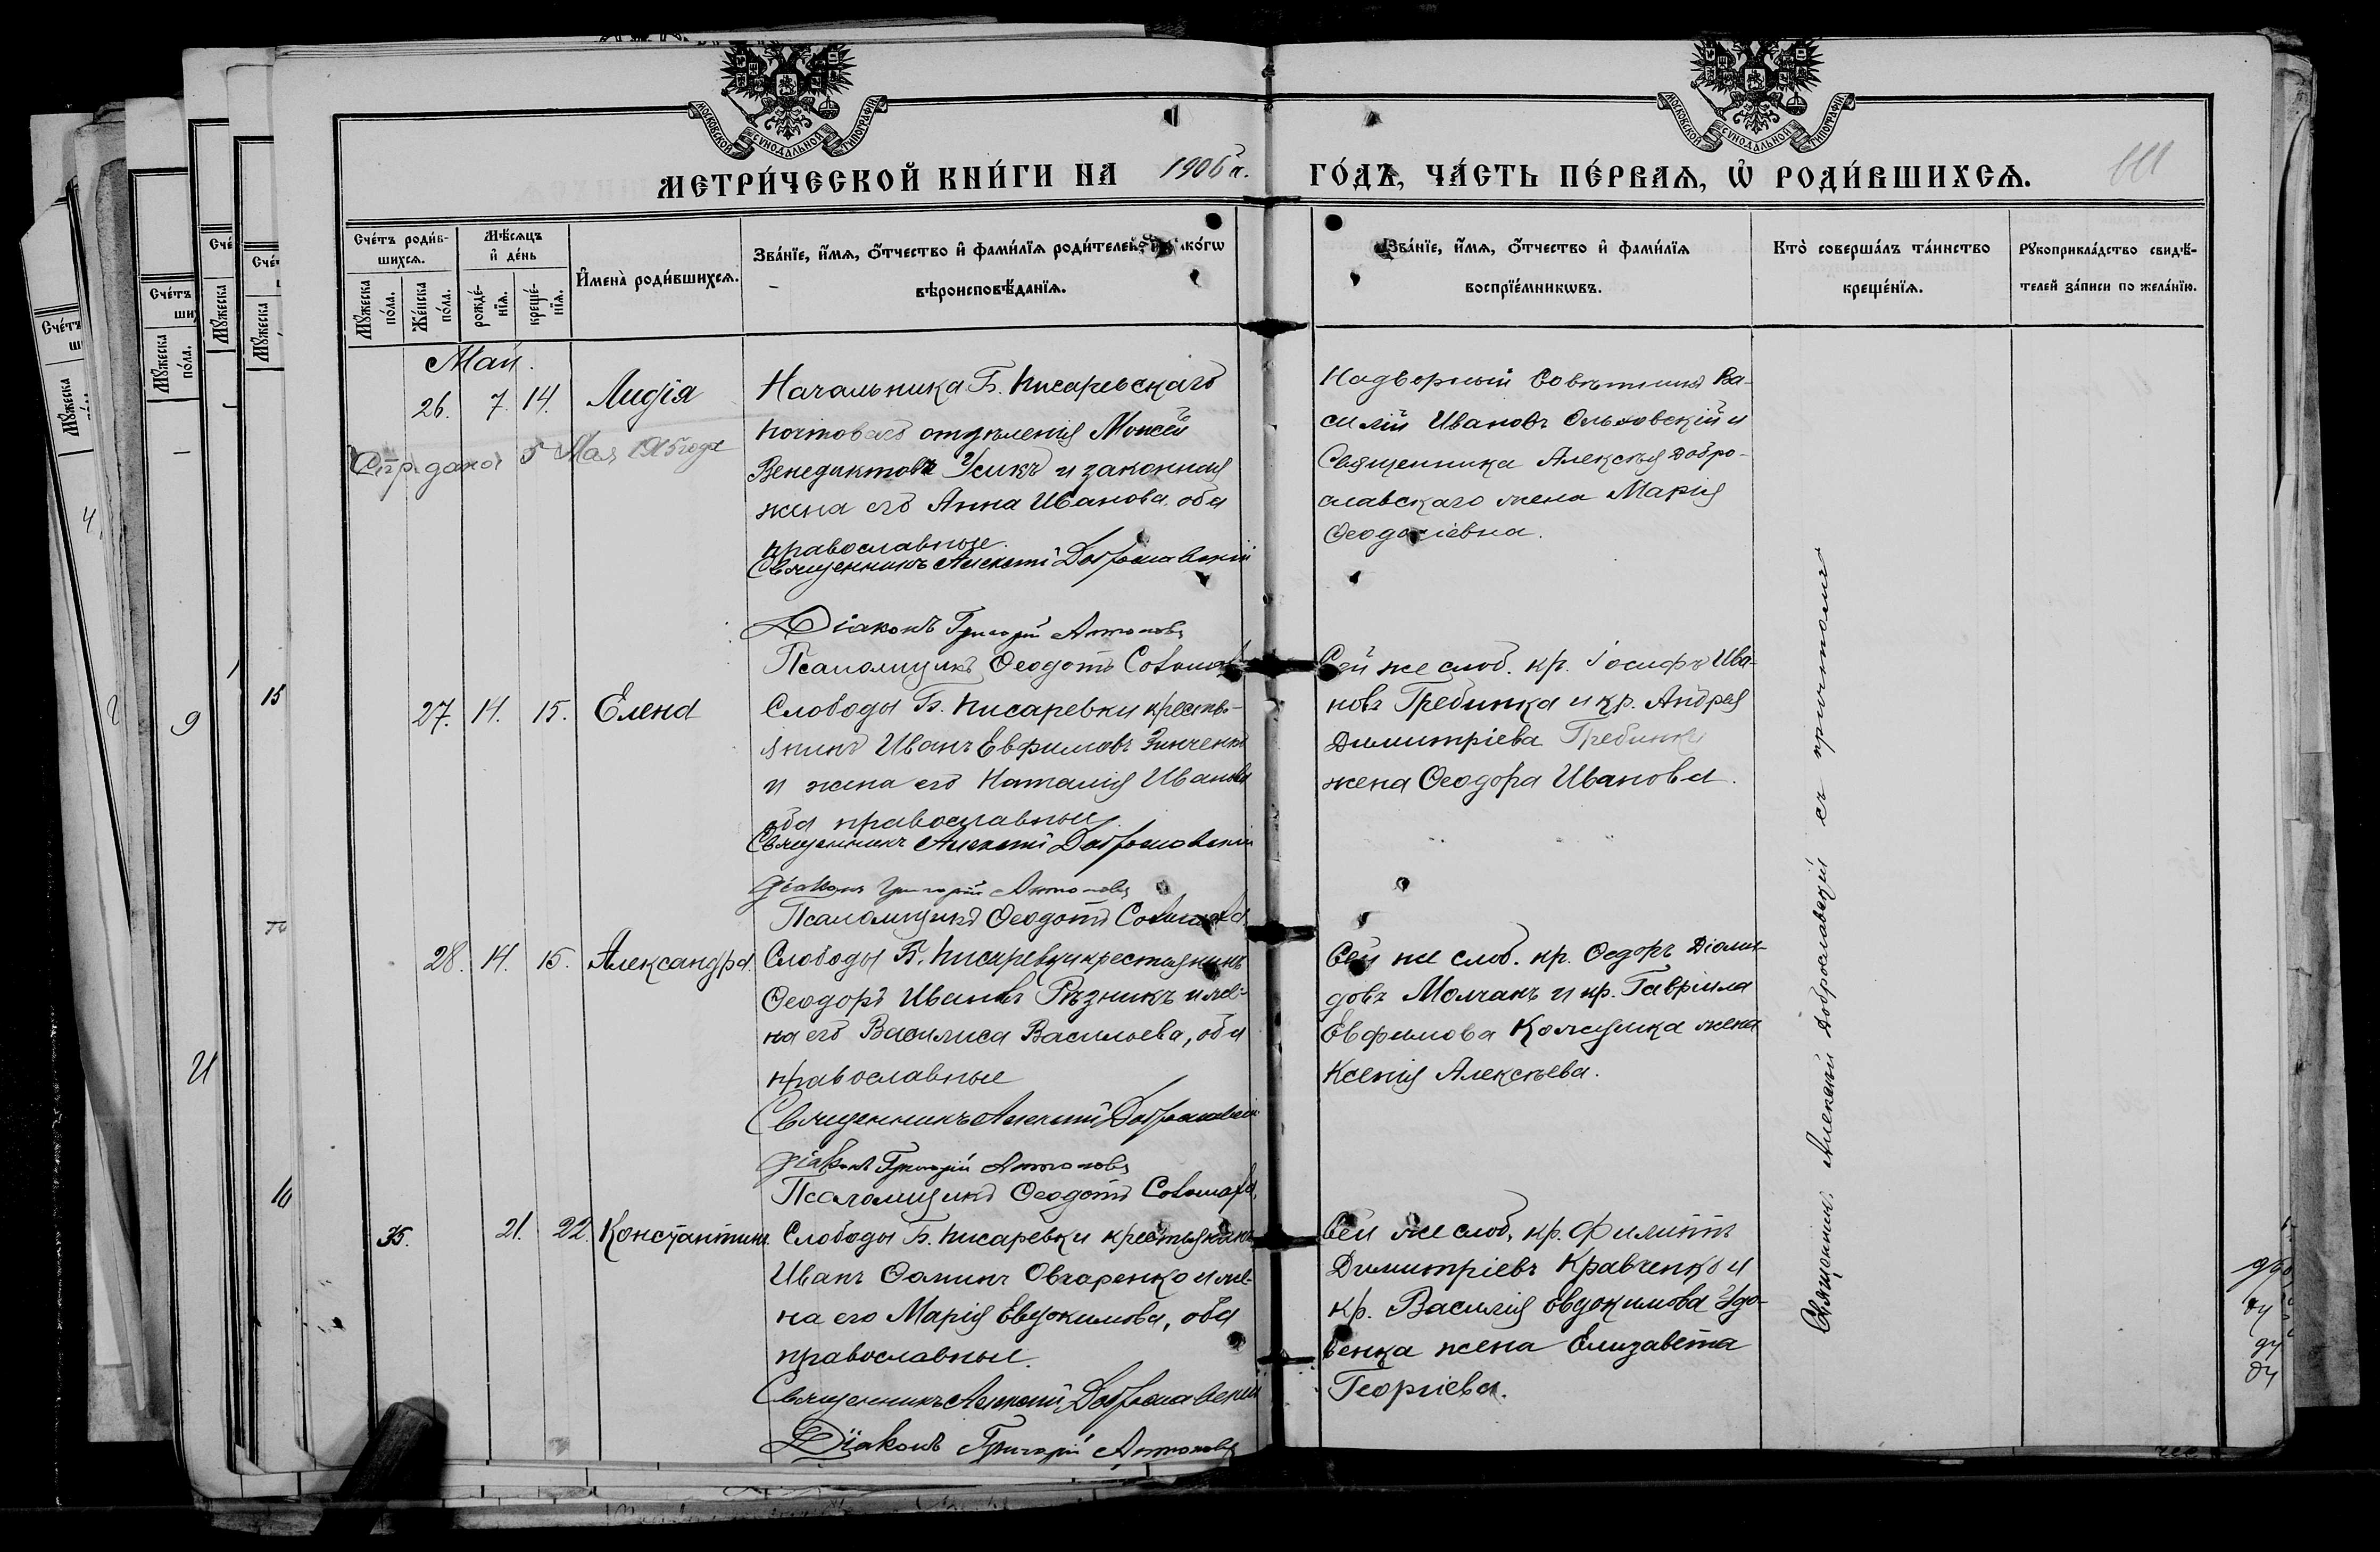 МОСКОВСКОЙ СѴНОДАЛЬНОЙ ТИПОГРАФІИ
МОСКОВСКОЙ СѴНОДАЛЬНОЙ ТИПОГРАФІИ
МЕТРИ́ЧЕСКОЙ КНИ́ГИ НА 1906 г. ГО́ДЪ, ЧА́СТЬ ПЕ́РВАѦ, Ѽ РОДИ́ВШИХСѦ.
Сче́тъ роди́в-
шихсѧ.
Мꙋжеска по́ла.
Же́нска по́ла.
Мѣ́сѧцъ
и҆ де́нь
рожде́-
нїѧ.
креще́-
нїѧ.
И҆мена̀ роди́вшихсѧ.
Зва́нїе, и҆́мѧ, ѻ҆́тчество и҆ фами́лїѧ роди́телей, и҆ како́гѡ
вѣроисповѣ́данїѧ.
Зва́нїе, и҆́мѧ, ѻ҆́тчество и҆ фами́лїѧ
воспрїе́мникѡвъ.
Кто̀ соверша́лъ та́инство
креще́нїѧ.
Рꙋкоприкла́дство свидѣ́-
телей за́писи по жела́нїю.
Май.
26. 7. 14. Лидія
Начальника Б. Писаревскаго
почтоваго отдѣленія Моисей
Венедиктовъ Усикъ и законная
жена его Анна Иванова, оба
православные.
Священникъ Алексій Доброславскій
Діаконъ Григорій Антоновъ
Псаломщикъ Ѳеодотъ
Стр. дана 5 Мая 1915 года
Надворный Совѣтникъ Ва-
силій Ивановъ Ольховскій и
Священника Алексѣя Добро-
славскаго жена Марія
Ѳеодосіевна.
27. 14. 15. Елена
Слободы Б. Писаревки кресть-
янинъ Иванъ Евфимовъ Зинченко
и жена его Наталія Иванова
оба православные.
Священникъ Алексій Доброславскій
Діаконъ Григорій Антоновъ
Псаломщикъ Ѳеодотъ
Сей же слоб. кр. Іосифъ Ива-
новъ Гребинка и кр. Андрея
Димитріева Гребинки
жена Ѳеодора Иванова.
28. 14. 15. Александра
Слободы Б. Писаревки крестьянинъ
Ѳеодоръ Ивановъ Рѣзникъ и же-
на его Василиса Васильева, оба
православные
Священникъ Алексій Доброславскій
Діаконъ Григорій Антоновъ
Псаломщикъ Ѳеодотъ
Сей же слоб. кр. Ѳедоръ Діоми-
довъ Молчанъ и кр. Гавріила
Евфимова жена
Ксенія Алексѣева.
35. 21. 22. Константинъ
Слободы Б. Писаревки крестьянинъ
Иванъ Ѳоминъ Овчаренко и же-
на его Марія Евдокимова, оба
православные.
Священникъ Алексій Доброславскій
Діаконъ Григорій Антоновъ
Сей же слоб. кр. Филиппъ
Димитріевъ Кравченко и
кр. Василія Евдокимова Удо-
венка жена Елизавета
Георгіева.
Священникъ Алексій Доброславскій съ причтомъ